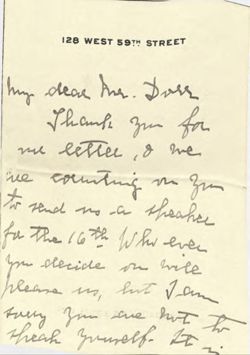 128 WEST 59TH STREET
My dear Mr. Dorr
Thank you for
letter, & we
are counting on you
to send us a speaker
for the 16th Who ever
you decide on will
please us, but I am
sorry you are not to
speak yourself. It is